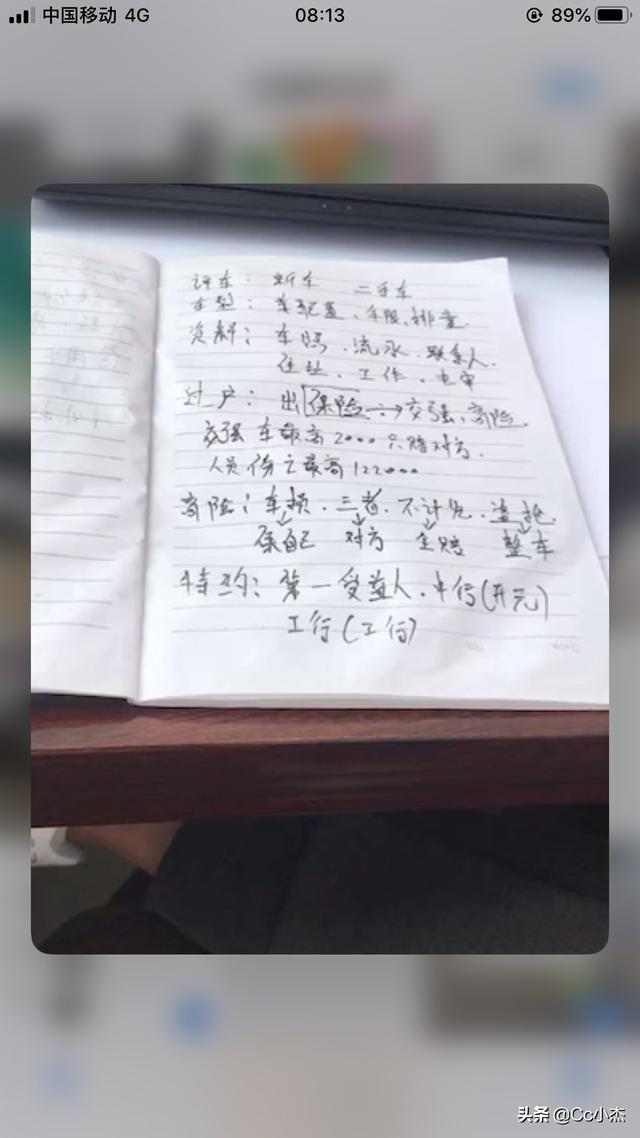 中国移动 4G 08:13 89%
评车：新车 二手车
车型：车配置、年限、排量.
资料：车照、流水、联系人.
住址、工作、电审
过户：出保险→交强、商险.
交强车最高2000只赔对方.
人员伤亡最高122000
商险：车损、三者、不计免、盗抢
保自己 对方 全赔 整车
特约：第一受益人、中行(开元)
工行(工行)
头条 @Cc小杰